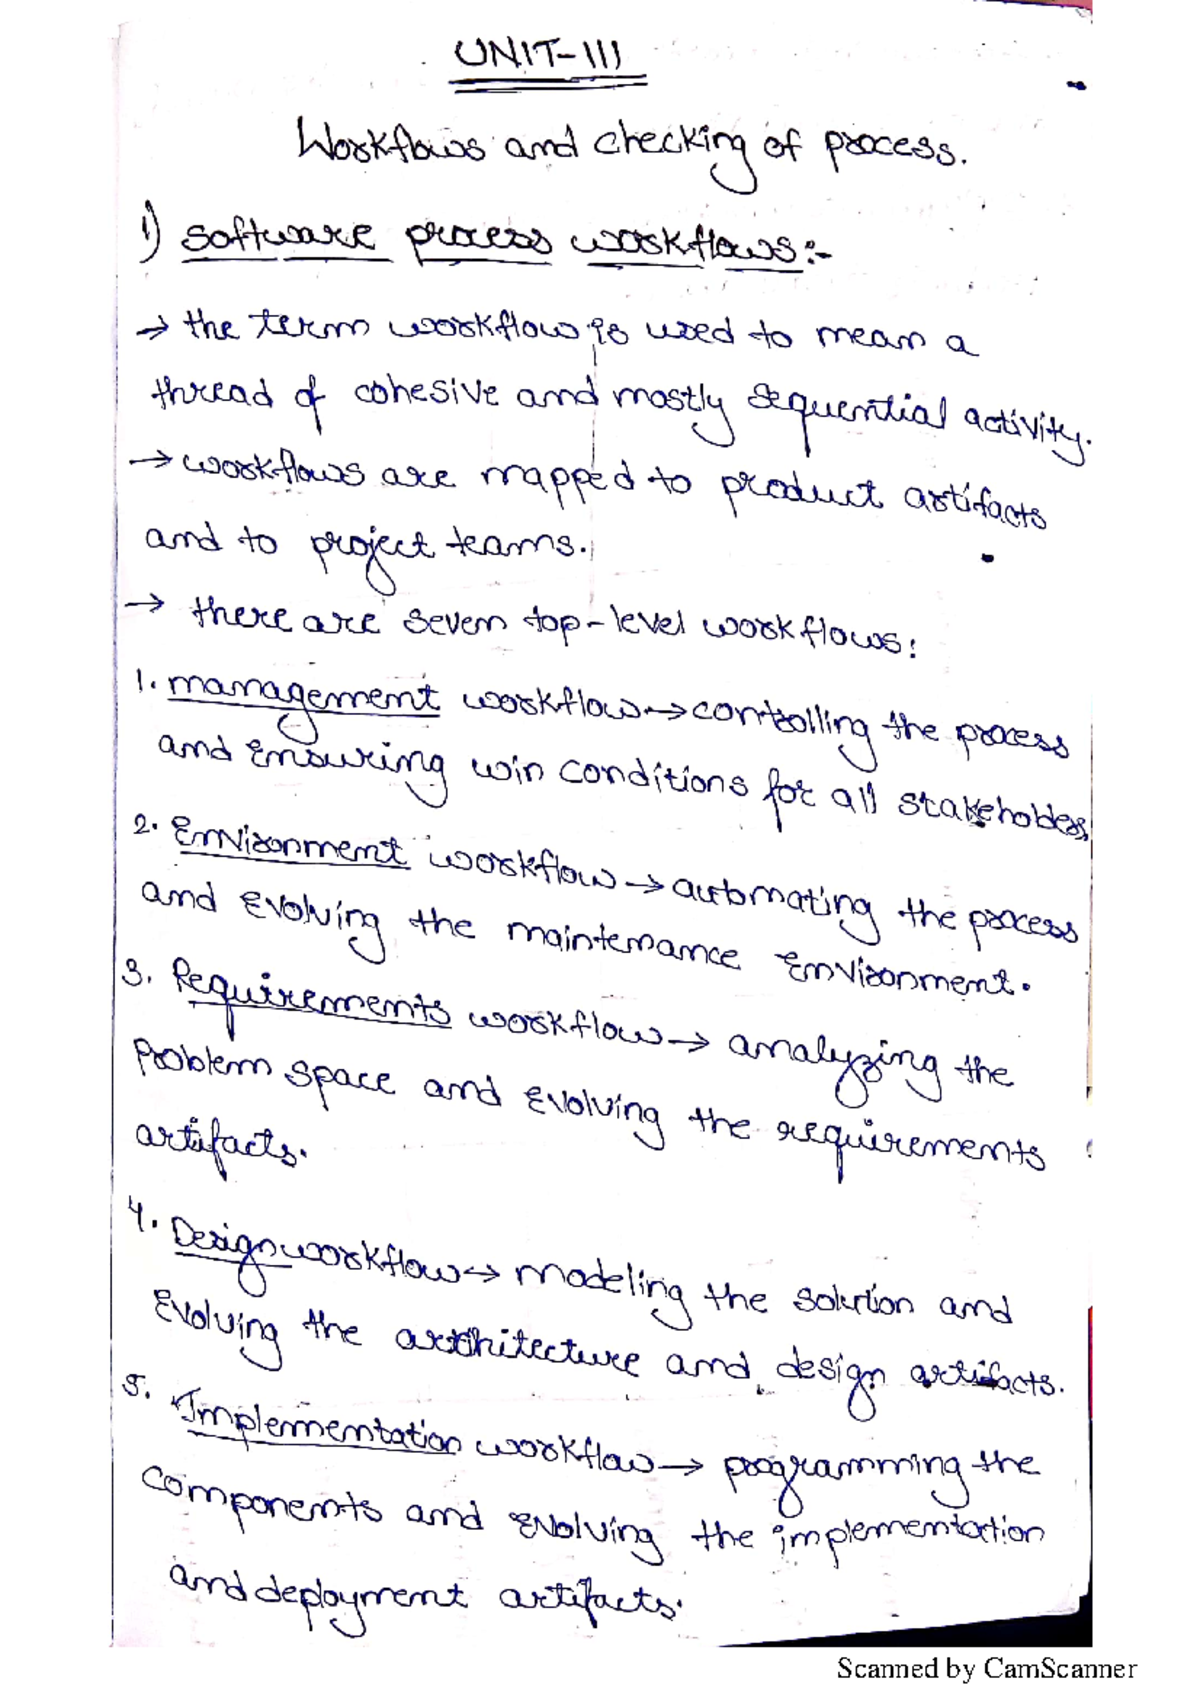 UNIT-III
Workflows and checking of process.
1) software process workflows:-
→ the term workflow is used to mean a
thread of cohesive and mostly sequential activity.
→ workflows are mapped to product artifacts
and to project teams.
→ there are seven top-level workflows:
1. management workflow → controlling the process
and ensuring win conditions for all stakeholdes.
2. Environment workflow → automating the process
and evolving the maintenance environment.
3. Requirements workflow → analyzing the
problem space and evolving the requirements
artifacts.
4. Design workflow → modeling the solution and
evolving the architecture and design artifacts.
5. Implementation workflow → programming the
components and evolving the implementation
and deployment artifacts.
Scanned by CamScanner